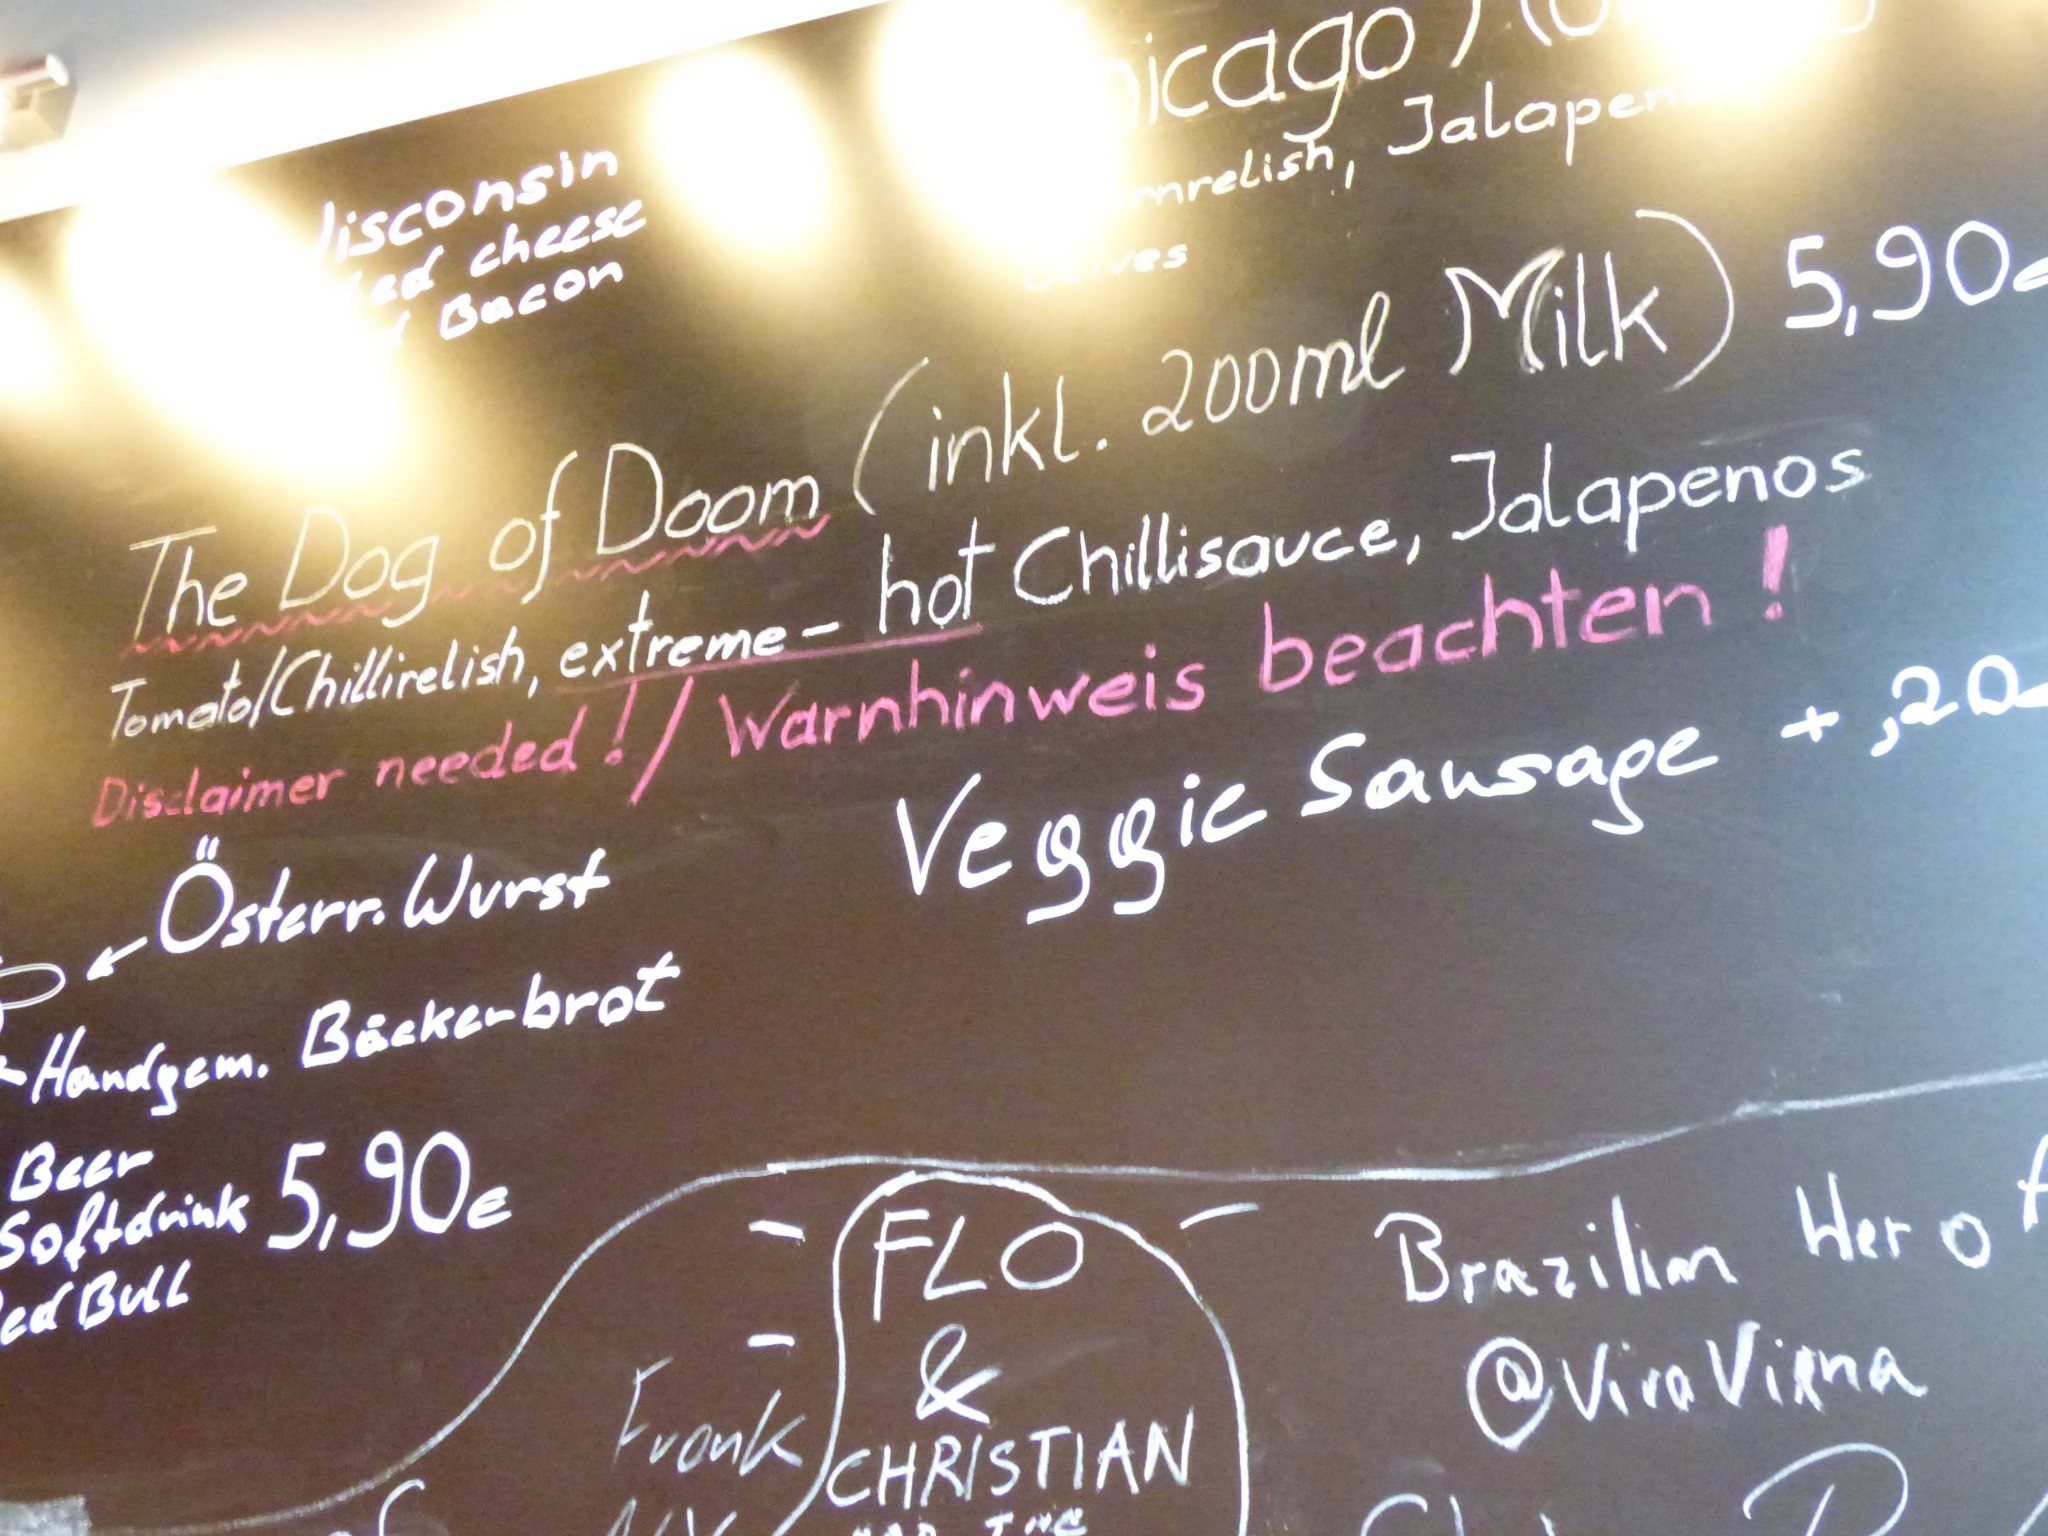 cheese
Bacon
Jalapen
The Dog of Doom (inkl. 200ml Milk) 5,90€
Tomato/Chillirelish, extreme-hot Chillisauce, Jalapenos
Disclaimer needed! / Warnhinweis beachten!
Veggie Sausage + ,20€
Österr. Wurst
Handgem. Bäckerbrot
Beer
Softdrink 5,90€
Red Bull
FLO
&
CHRISTIAN
Frank
Brazilian Hero
@Viva Vienna